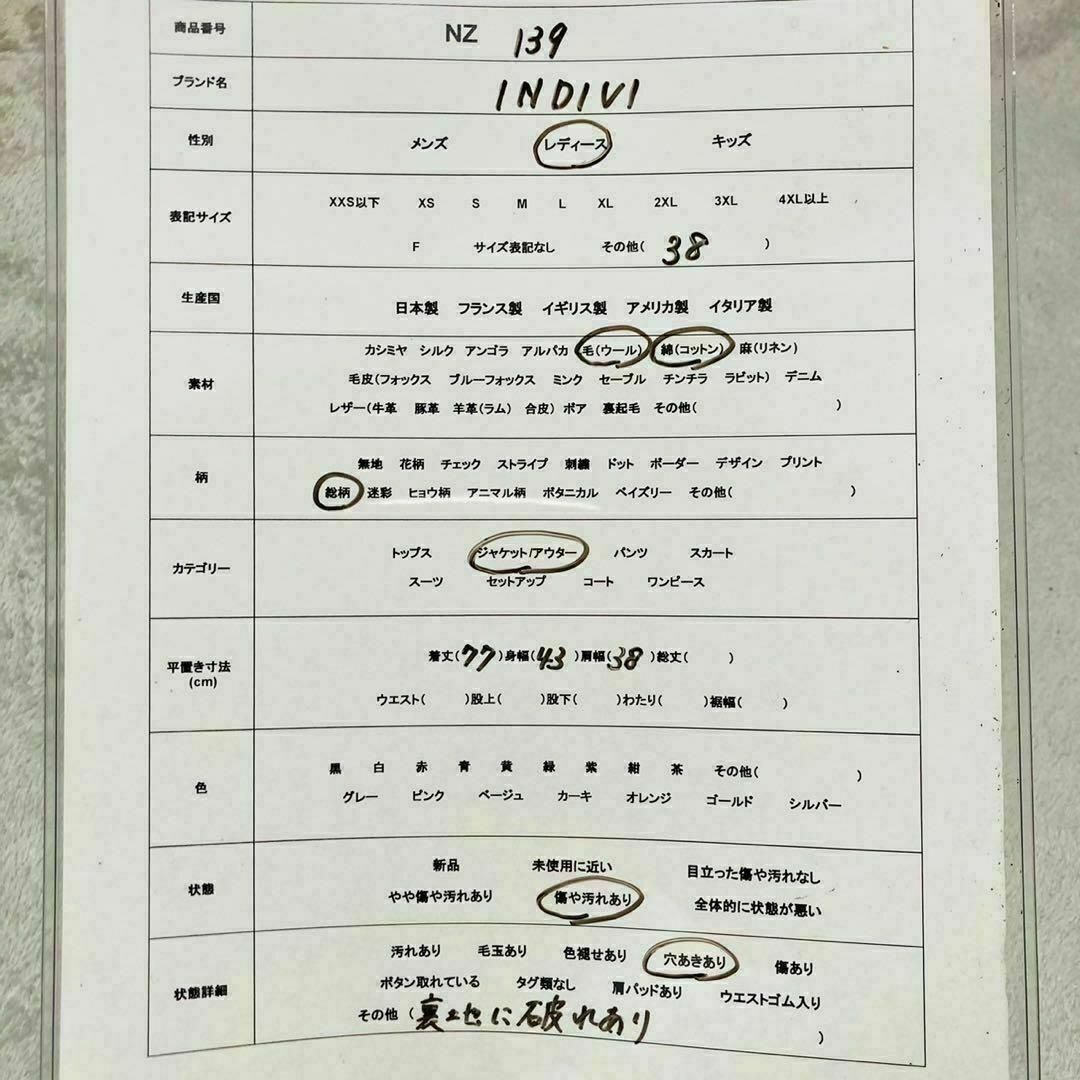 商品番号 NZ 139
ブランド名 INDIVI
性別 メンズ レディース キッズ
表記サイズ
XXS以下 XS S M L XL 2XL 3XL 4XL以上
F サイズ表記なし その他( 38 )
生産国 日本製 フランス製 イギリス製 アメリカ製 イタリア製
素材
カシミヤ シルク アンゴラ アルパカ 毛(ウール) 綿(コットン) 麻(リネン)
毛皮(フォックス ブルーフォックス ミンク セーブル チンチラ ラビット) デニム
レザー(牛革 豚革 羊革(ラム) 合皮) ボア 裏起毛 その他( )
柄
無地 花柄 チェック ストライプ 刺繍 ドット ボーダー デザイン プリント
総柄 迷彩 ヒョウ柄 アニマル柄 ボタニカル ペイズリー その他( )
カテゴリー
トップス ジャケット/アウター パンツ スカート
スーツ セットアップ コート ワンピース
平置き寸法
(cm)
着丈(77)身幅(43)肩幅(38)総丈( )
ウエスト( )股上( )股下( )わたり( )裾幅( )
色
黒 白 赤 青 黄 緑 紫 紺 茶 その他( )
グレー ピンク ベージュ カーキ オレンジ ゴールド シルバー
状態
新品 未使用に近い 目立った傷や汚れなし
やや傷や汚れあり 傷や汚れあり 全体的に状態が悪い
状態詳細
汚れあり 毛玉あり 色褪せあり 穴あきあり 傷あり
ボタン取れている タグ類なし 肩パッドあり ウエストゴム入り
その他 ( 裏地に破れあり )